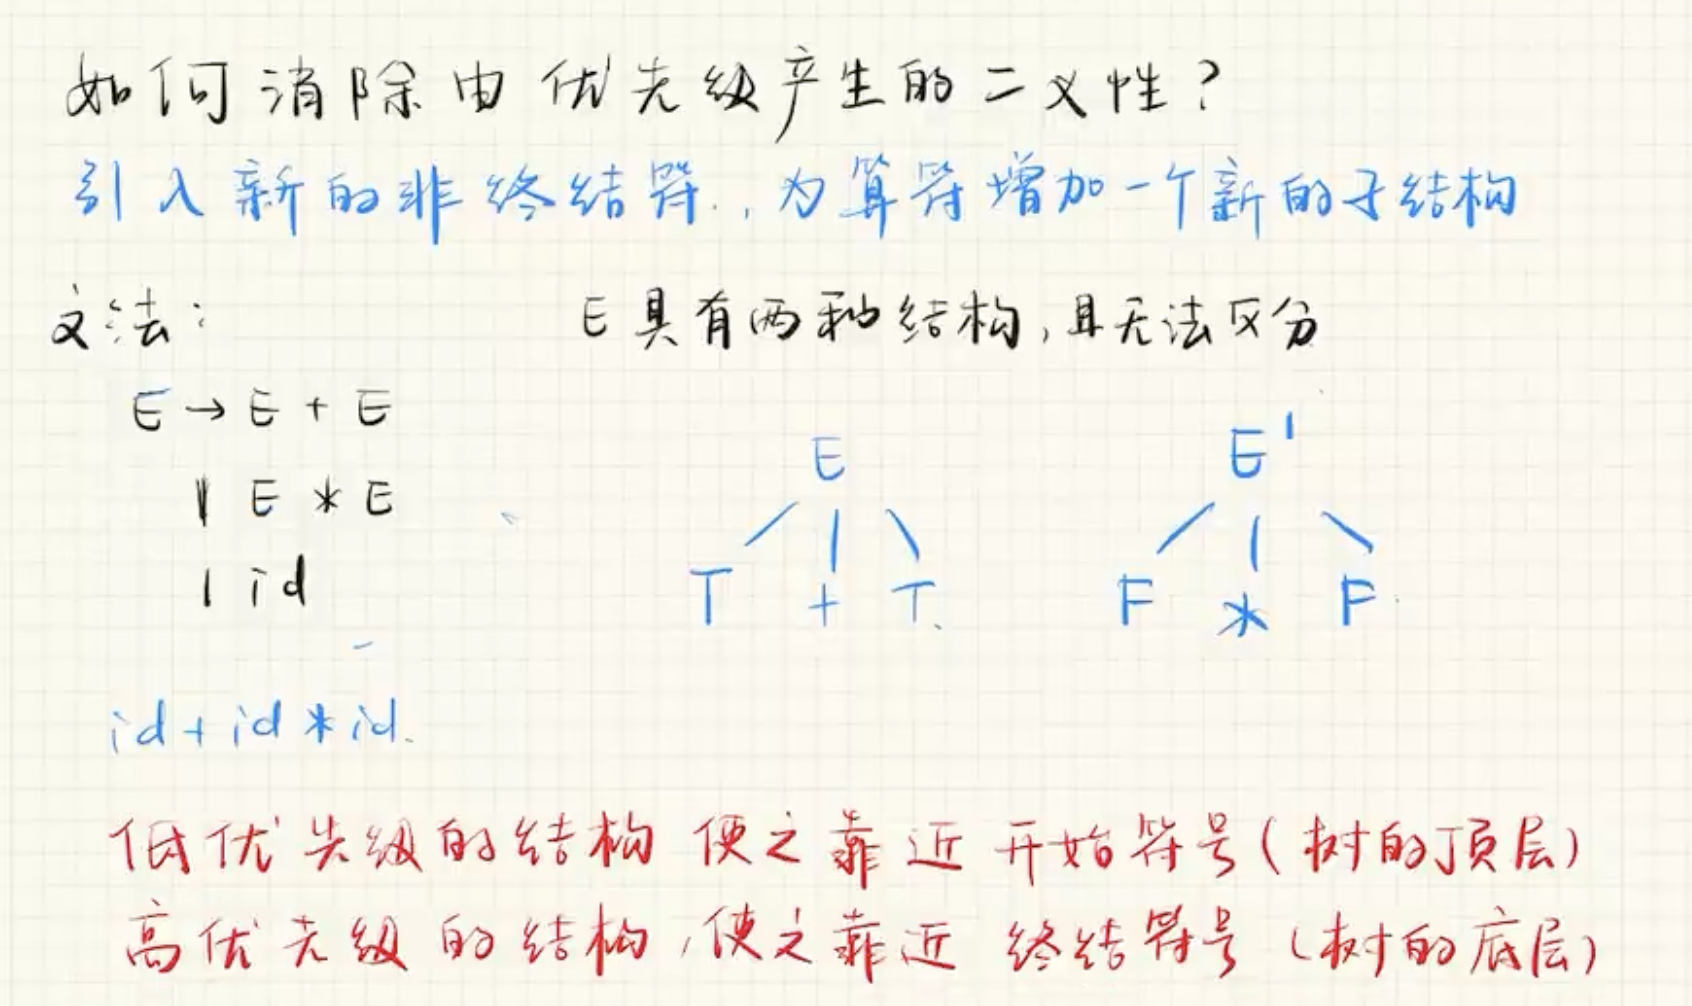 如何消除由优先级产生的二义性?
引入新的非终结符,为算符增加一个新的子结构
文法:
E具有两种结构,且无法区分
E → E + E
| E * E
| id
E
T + T
E'
F * F
id + id * id
低优先级的结构 使之靠近 开始符号(树的顶层)
高优先级的结构,使之靠近 终结符号(树的底层)